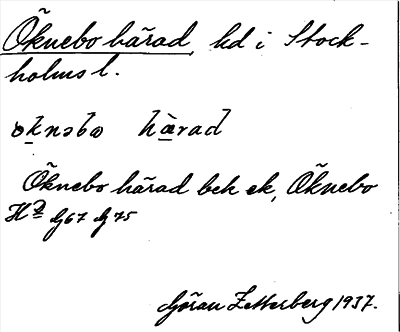 Öknebo härad, hd i Stock-
holms l.
härad
Öknebo härad bek ek, Öknebo
Hd 67 75
Göran Zetterberg 1937.